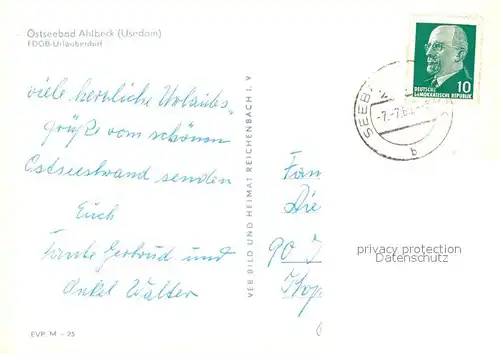 Ostseebad Ahlbeck (Usedom)
FDGB-Urlauberdorf
viele herrliche Urlaubs-
grüße vom schönen
Ostseestrand senden
Euch
Tante Gertrud und
Onkel Walter
EVP. M -.25
VEB BILD UND HEIMAT REICHENBACH I. V
DEUTSCHE
DEMOKRATISCHE REPUBLIK
10
SEEB
-7.-7.6
b
Fam
Die
90
privacy protection
Datenschutz